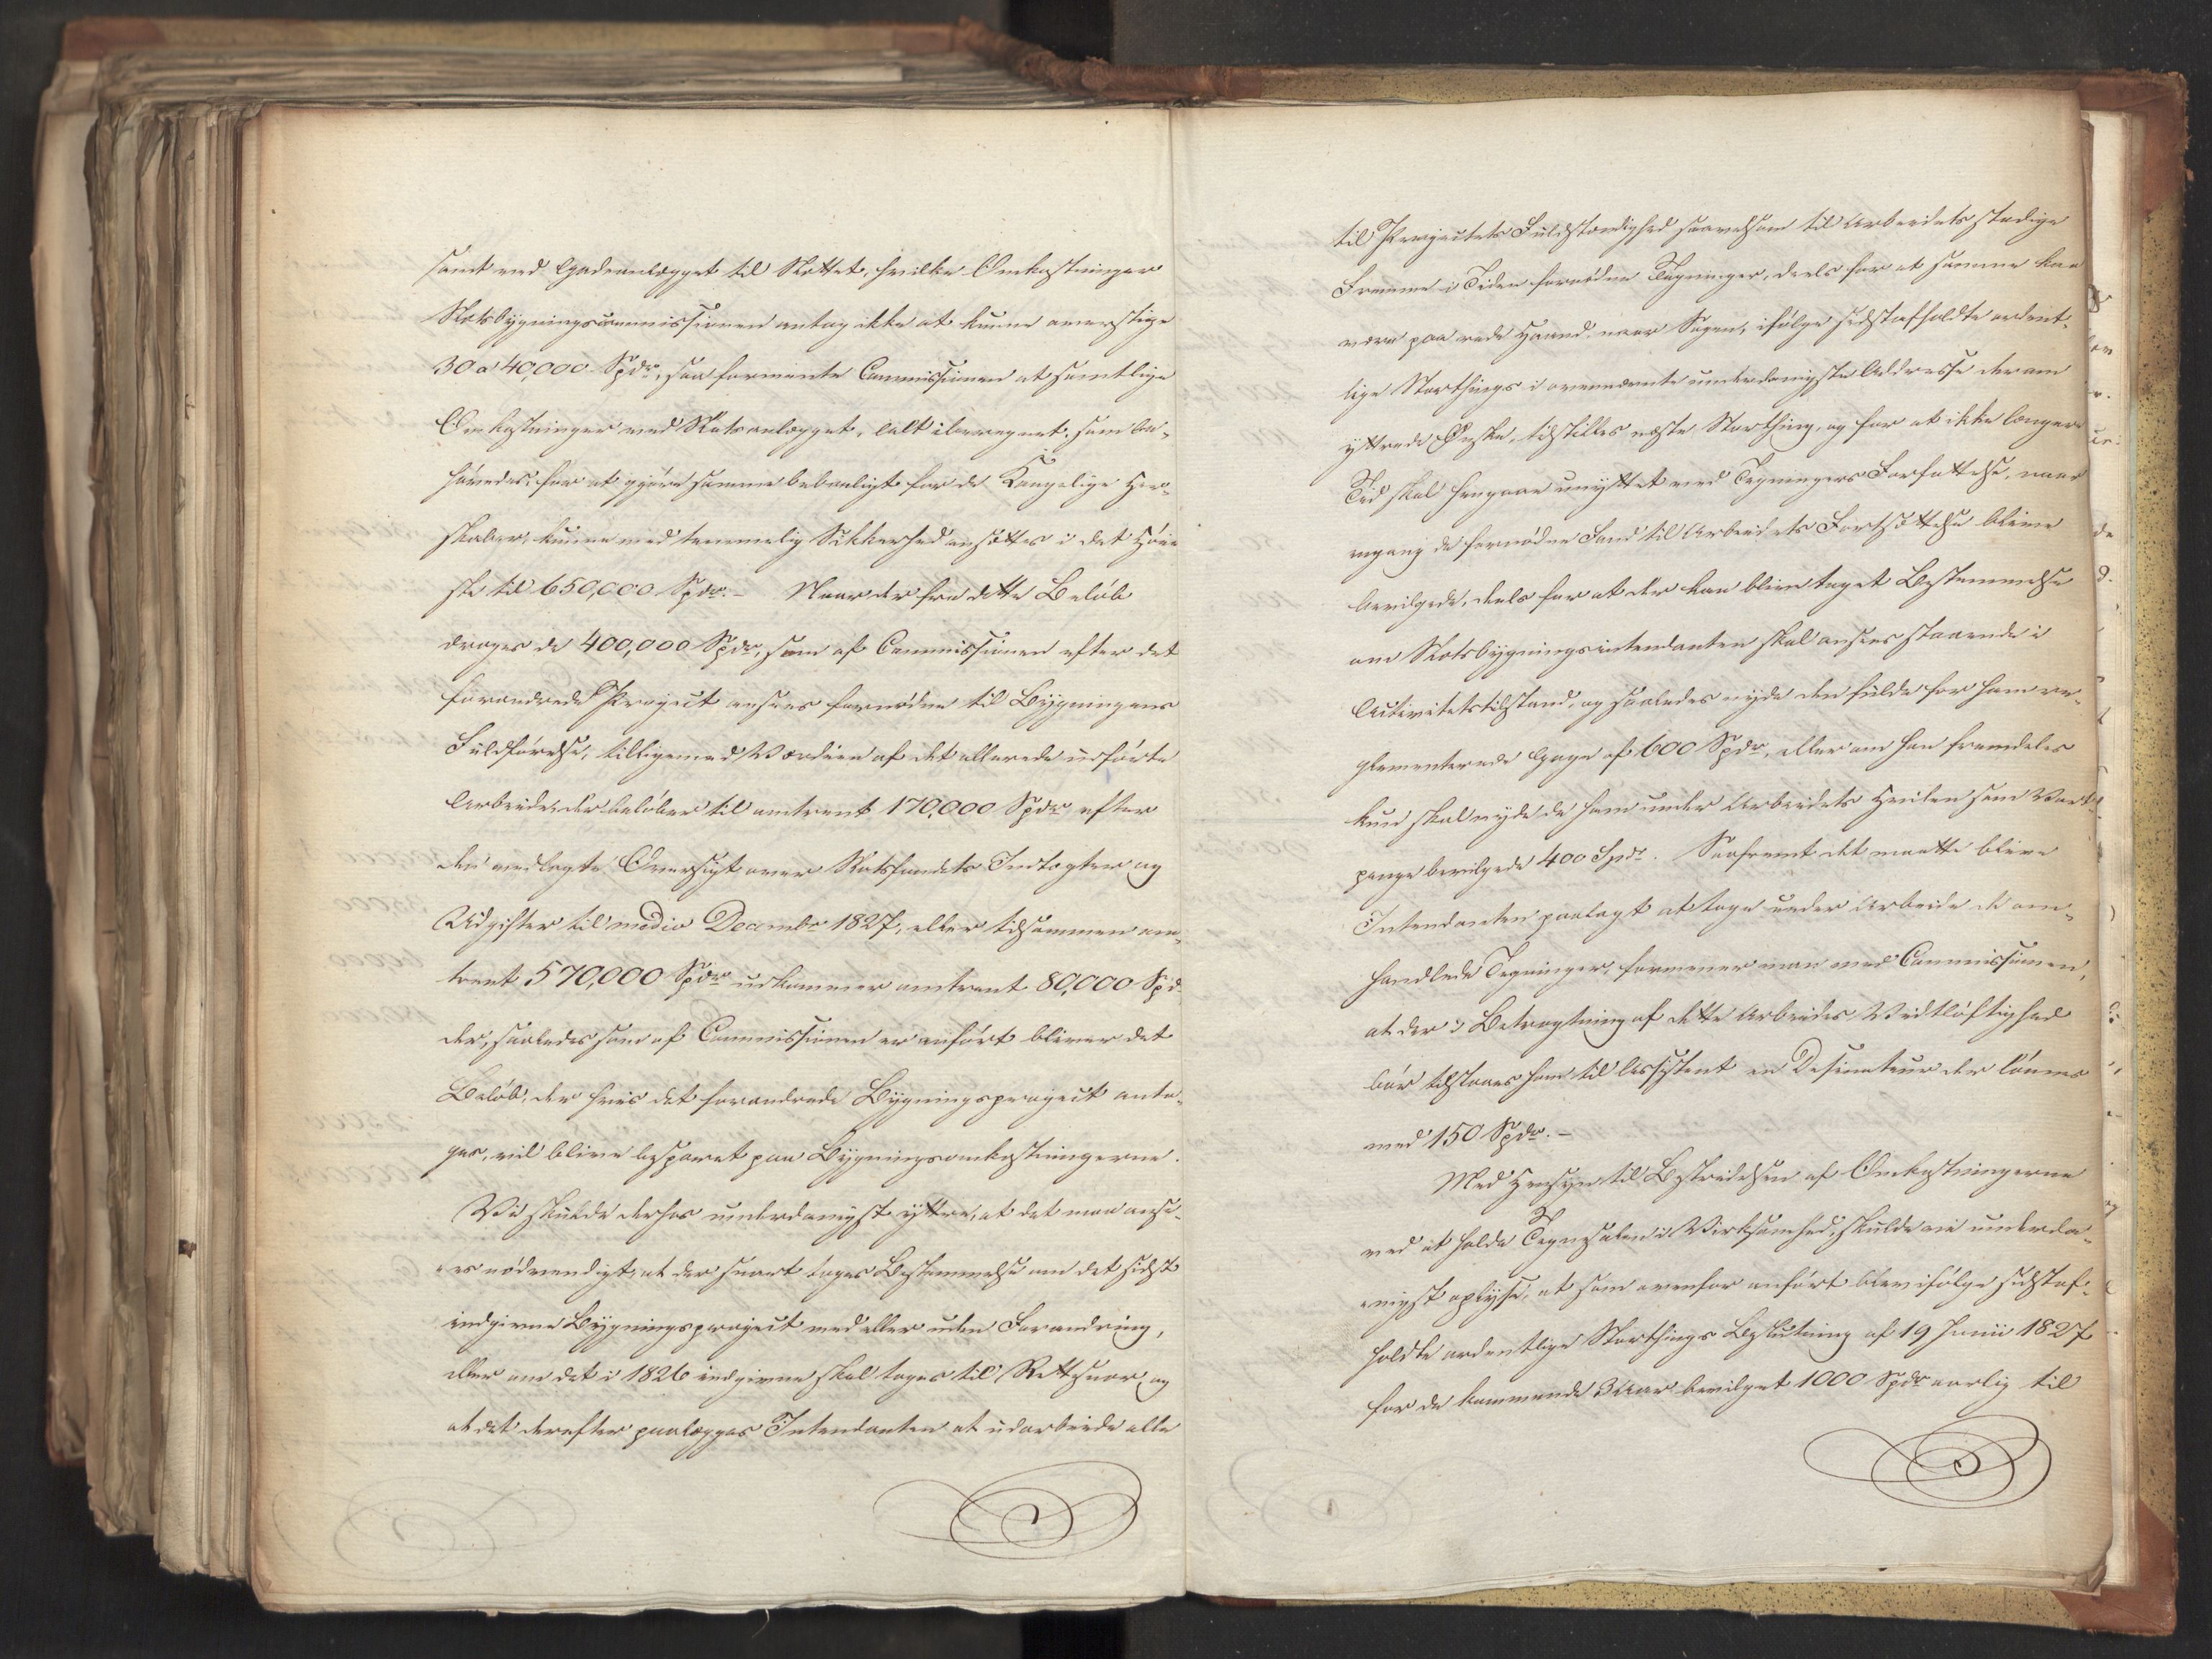 samt ved Gadeanlægget til Slottet, hvilke Omkostninger
Slotsbygningscommissionen antog ikke at kunne overstige
30 a 40,000 Spdr, saa formente Commissionen at samtlige
Omkostninger ved Slotsanlægget, Alt iberegnet, som be-
hövedes for at gjöre samme beboeligt for de Kongelige Her-
skaber, kunne med temmelig Sikkerhed ansættes i det Höie
ste til 650,000 Spdr. – Naar der fra dette Belöb
drages de 400,000 Spdr, som af Commissionen efter det
forandrede Project ansees fornödne til Bygningens
Fuldförelse, tilligemed Værdien af det allerede udförte
Arbeide, der belöber til omtrent 170,000 Spdr efter
den vedlagte Oversigt over Slotsfondets Indtægter og
Udgifter til medio Decembr 1827, eller tilsammen om-
trent 570,000 Spdr udkommer omtrent 80,000 Spd
der, saaledes som af Commissionen er anfört bliver det
Belöb, der hvis det forandrede Bygningsproject anta-
ges, vil blive besparet paa Bygningsomkostningerne.
Vi skulde derhos underdanigst yttre, at det man anse-
es nödvendigt, at der snart tages Bestemmelse om det sidst
indgivne Bygningsproject med eller uden Forandring,
eller om det i 1826 indgivne skal tages til Rettesnor, og
at det derefter paalægges Intendanten at udarbeide alle
til Projectets Fuldstændighed saavelsom til Arbeidets stadige
Fremme i Tiden fornödne Tegninger, deels for at samme kan
være paa rede Haand, naar Sagen, ifölge sidstafholdte ordent-
lige Storthings i ovennævnte underdanigste Addresse derom
yttrede Önske, tilstilles næste Storthing, og for at ikke længere
Tid skal hengaae unyttet med Tegningers Forfattelse, naar
engang de fornödne Fond til Arbeidets Fortsættelse blive
bevilgede, deels for at der kan blive taget Bestemmelse
om Slotsbygningsintendanten skal ansees staaende i
Activitetstilstand, og saaledes nyde den fulde for ham re-
glementerede Gage af 600 Spdr, eller om han fremdeles
kun skal nyde de ham under Arbeidets Hvilen som Vart-
penge bevilgede 400 Spdr. Saafremt det maatte blive
Intendanten paalagt at tage under Arbeide de om-
handlede Tegninger, formener man med Commissionen,
at der i Betragtning af dette Arbeides Vidtlöftighed
bör tilstaaes ham til Assistent en Desinateur der lönnes
med 150 Spdr. –
Med Hensyn til Bestridelsen af Omkostningerne
ved at holde Tegnesalen i Virksomhed, skulde vi underda-
nigst oplyse, at som ovenfor anfört blev ifölge sidstaf-
holdte ordentlige Storthings Beslutning af 19 Junii 1827
for de kommende 3 Aar bevilget 1000 Spdr aarlig til